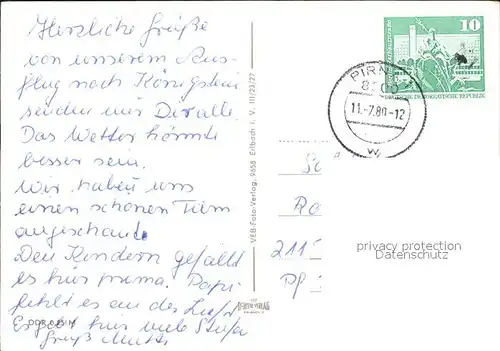 Herzliche Grüße
von unserem Aus-
flug nach Königstein
senden wir Dir alle.
Das Wetter könnte
besser sein.
Wir haben uns
einen schönen Turm
angeschaut.
Den Kindern gefällt
es hier prima. Papi
fehlt es an der Luft
Es geht hier viele Stufen
Gruß Mutti
VEB-Foto-Verlag, 9658 Erlbach i. V. III/23/27
10
DEUTSCHE DEMOKRATISCHE REPUBLIK
PIRNA
8300
11.-7.80-12
w
211
privacy protection
Datenschutz